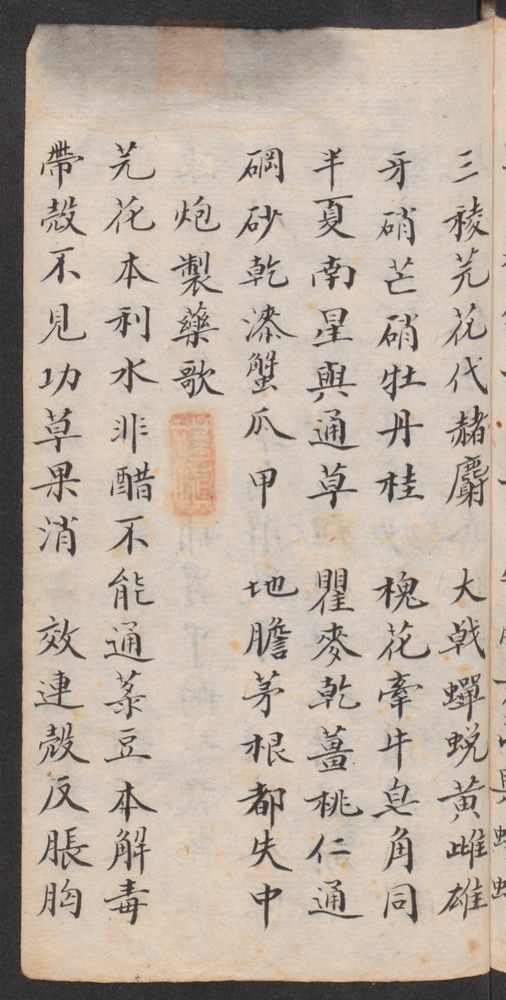 三稜芫花代赭麝　大戟蟬蛻黃雌雄
牙硝芒硝牡丹桂　槐花牽牛皂角同
半夏南星與通草　瞿麥乾薑桃仁通
硇砂乾漆蟹爪甲　地膽茅根都失中
炮製藥歌
芫花本利水非醋不能通菉豆本解毒
帶殼不見功草果消　效連殼反脹胸